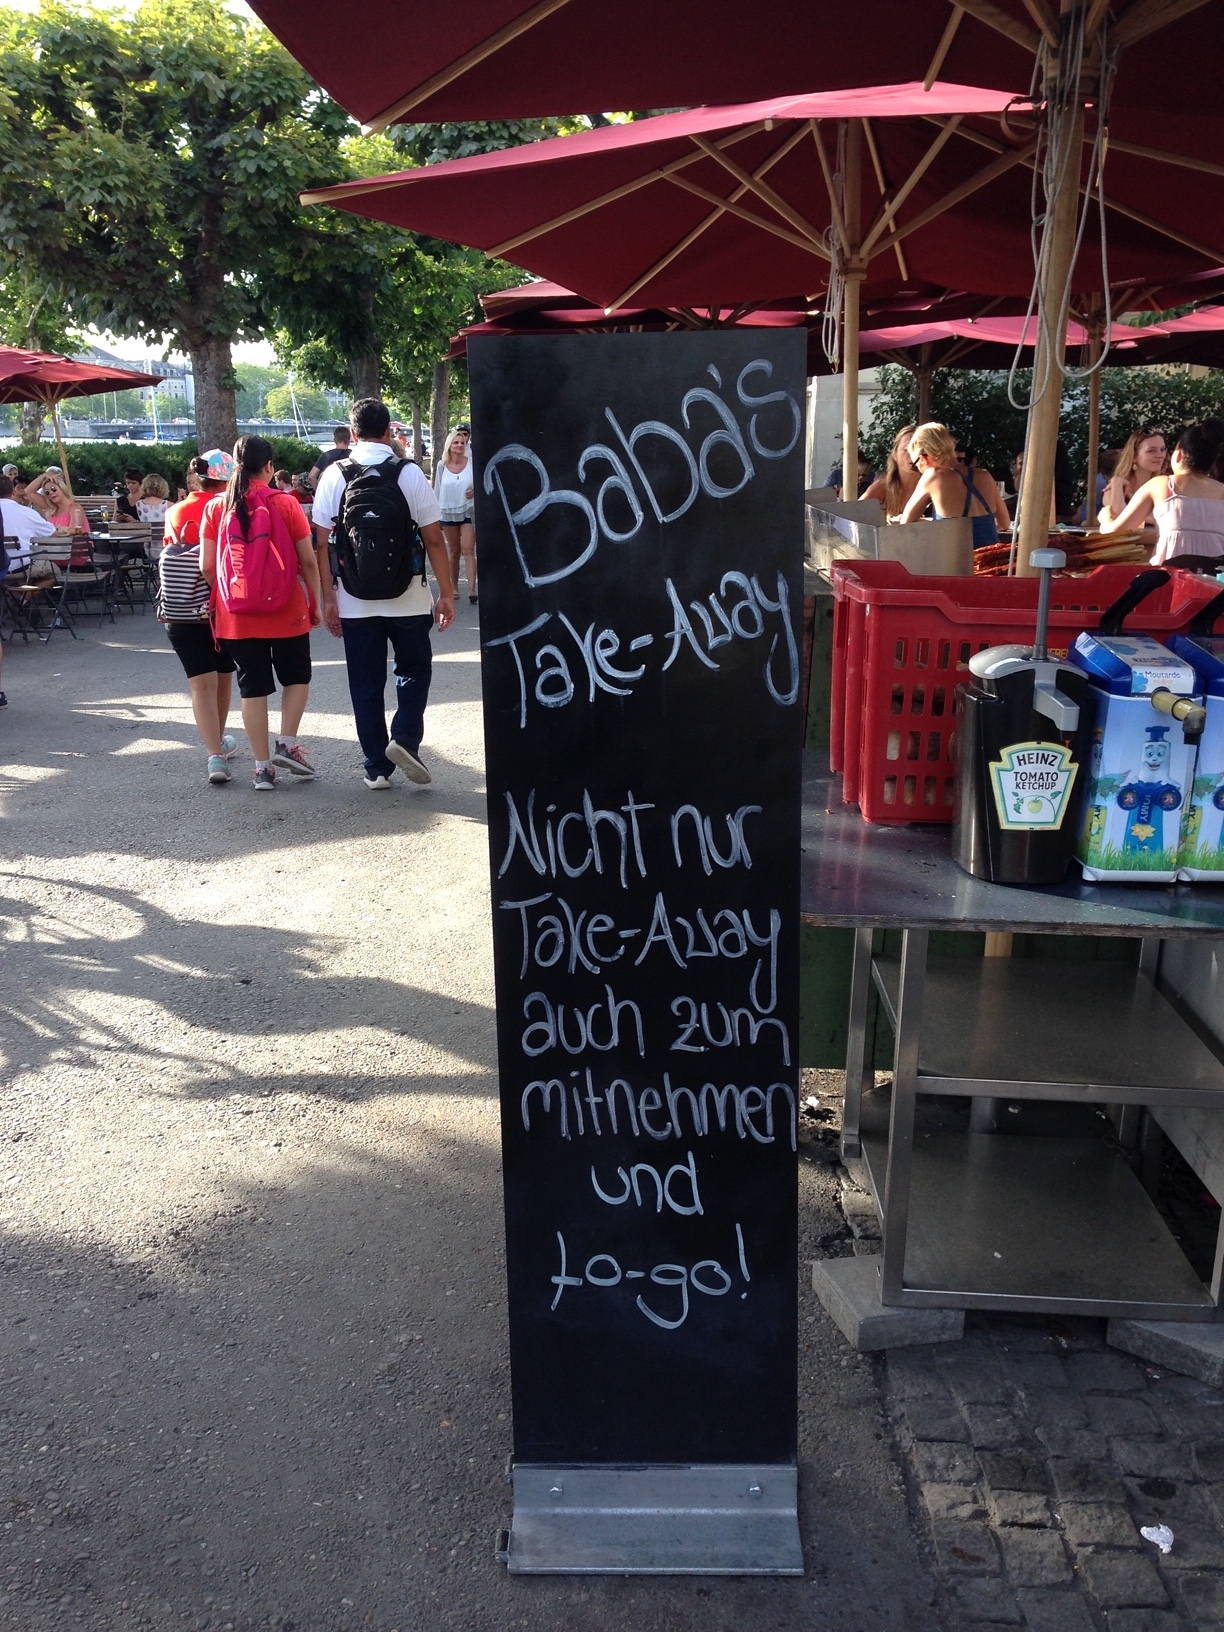 Baba's
Take-Away
Nicht nur
Take-Away
auch zum
mitnehmen
und
to-go!
PUMA
HEINZ
TOMATO
KETCHUP
Moutarde
THOMY